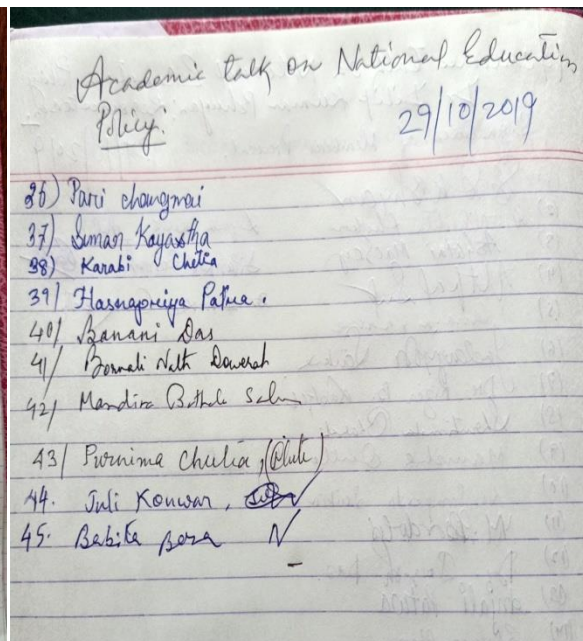 Academic talk on National Education
Policy.
29/10/2019
36) Pari changmai
37) Suman Kayastha
38) Karabi Chetia
39/ Hasnapriya Patra.
40/ Banani Das
41/ Bornali Nath Dowerah
42/ Mandira
43/ Purnima Chutia,
44. Juli Konwar,
45. Babita Bora N